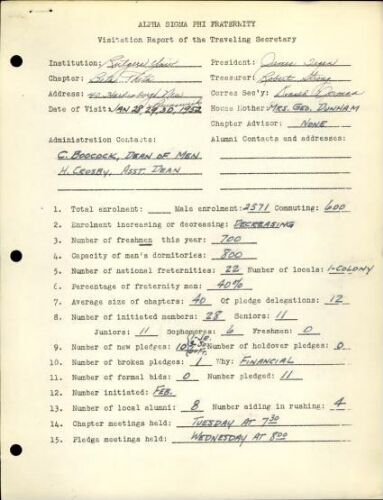 ALPHA SIGMA PHI FRATERNITY
Visitation Report of the Traveling Secretary
Institution: Rutgers Univ President: James
Chapter: Beta Theta Treasurer: Robert
Address: 42 New Corres Sec'y:
Date of Visit: JAN 28, 29, 30, 1952 House Mother: MRS. GEO. DUNHAM
Brunswick
Chapter Advisor: NONE
Administration Contacts: Alumni Contacts and addresses:
C. BOOCOCK, DEAN OF MEN
H. CROSBY, ASST. DEAN
1. Total enrolment: Male enrolment: 2571 Commuting: 600
2. Enrolment increasing or decreasing: DECREASING
3. Number of freshmen this year: 700
4. Capacity of men's dormitories: 800
5. Number of national fraternities: 22 Number of locals: 1-COLONY
6. Percentage of fraternity men: 40%
7. Average size of chapters: 40 Of pledge delegations: 12
8. Number of initiated members: 28 Seniors: 11
Juniors: 11 Sophomores: 6 Freshmen: 0
9. Number of new pledges: 10 Number of holdover pledges: 0
10. Number of broken pledges: 1 Why: FINANCIAL
11. Number of formal bids: 0 Number pledged: 11
12. Number initiated: FEB.
13. Number of local alumni: 8 Number aiding in rushing: 4
14. Chapter meetings held: TUESDAY AT 7:30
15. Pledge meetings held: WEDNESDAY AT 8:00